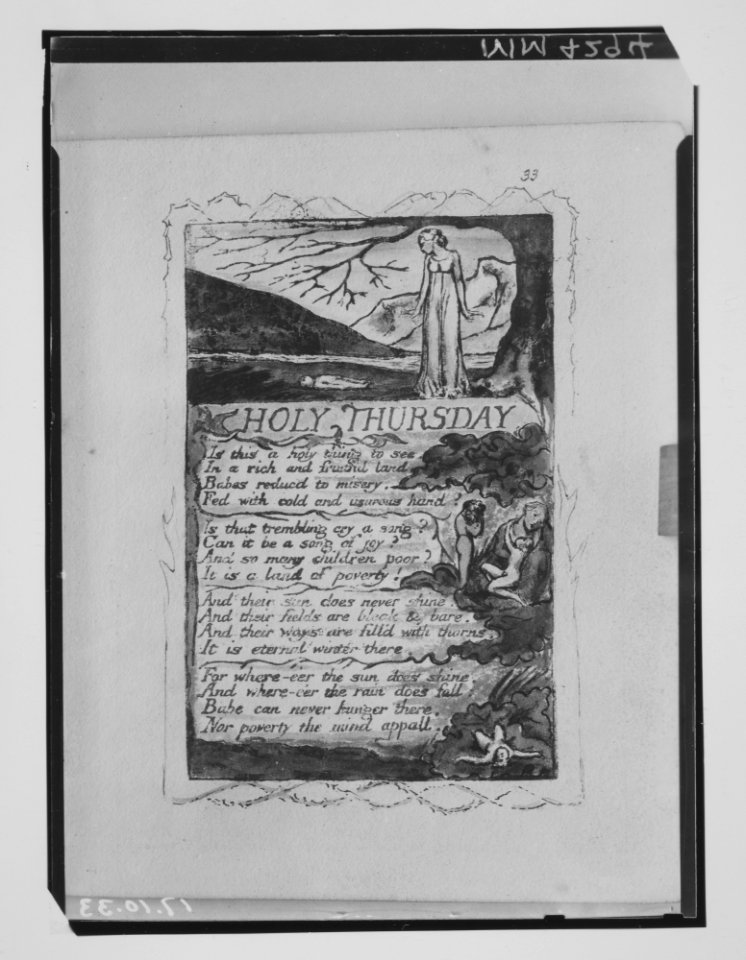 MM 4294
33
HOLY THURSDAY
Is this a holy thing to see
In a rich and fruitful land
Babes reducd to misery.
Fed with cold and usurous hand?
Is that trembling cry a song?
Can it be a song of joy?
And so many children poor?
It is a land of poverty!
And their sun does never shine.
And their fields are bleak & bare.
And their ways are fill'd with thorns.
It is eternal winter there
For where-e'er the sun does shine,
And where-e'er the rain does fall:
Babe can never hunger there.
Nor poverty the mind appall.
17.10.33